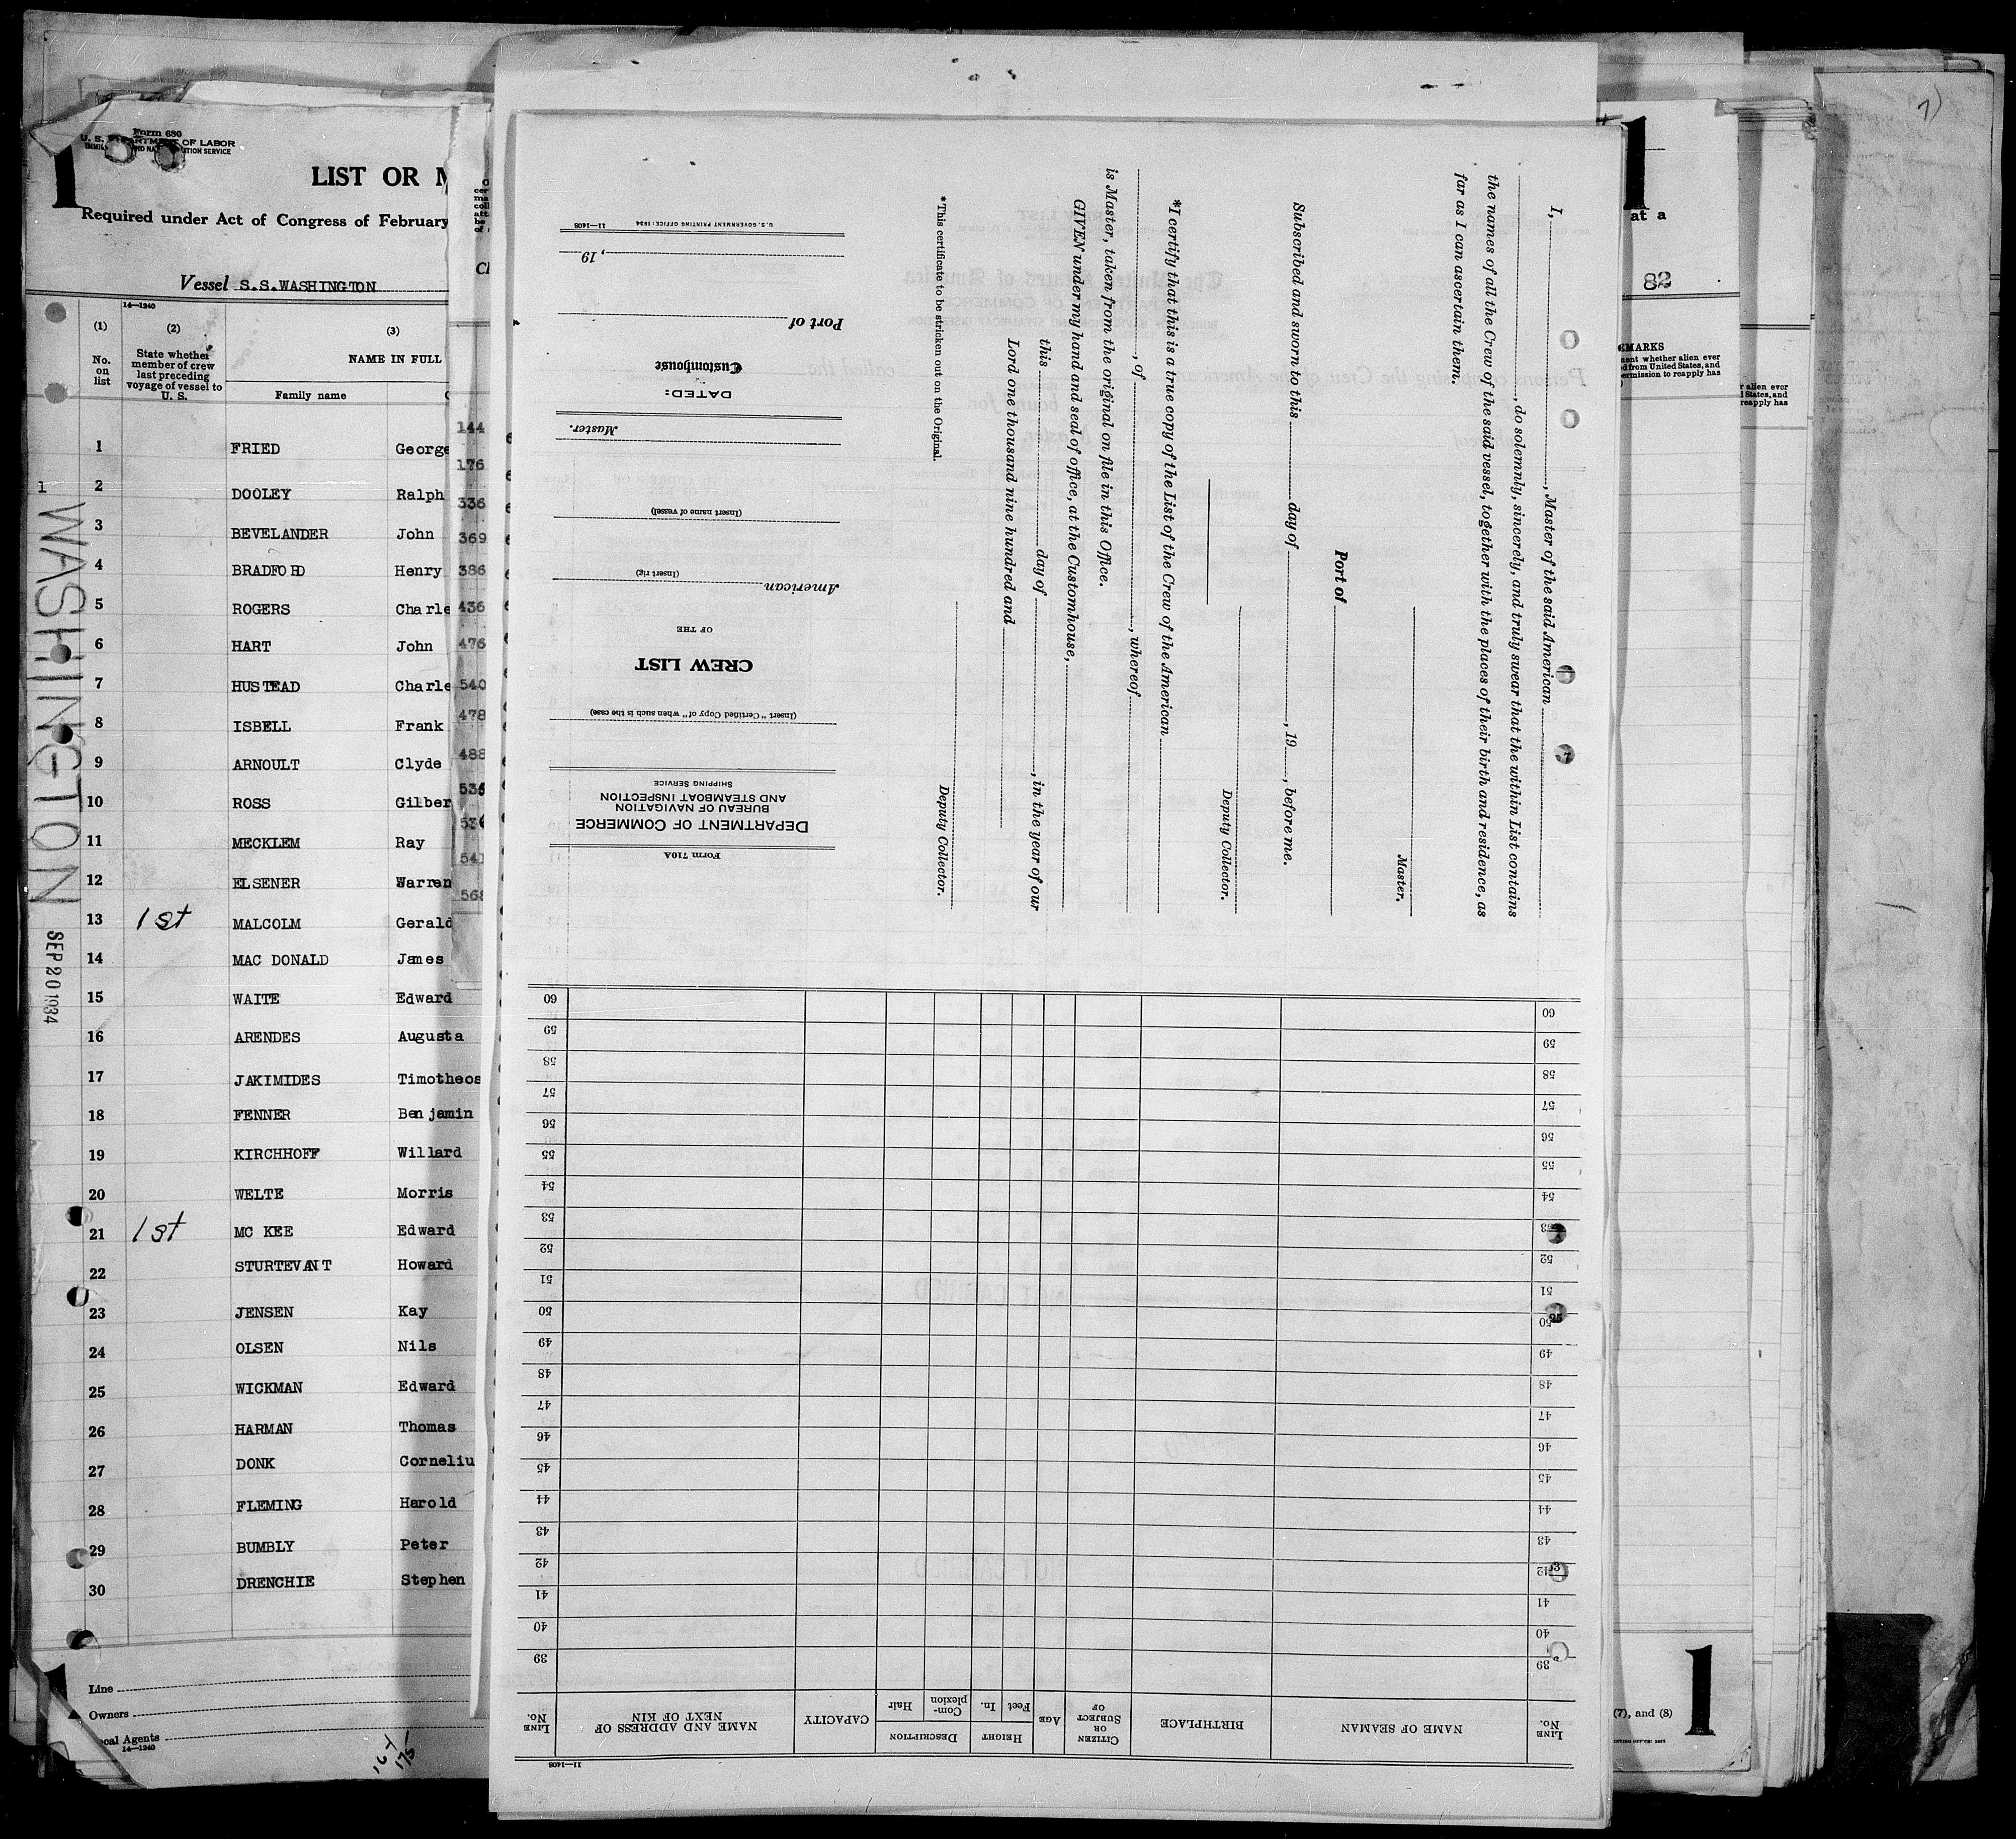 Form 680
U. S. DEPARTMENT OF LABOR
LIST OR
Required under Act of Congress of February
Vessel S.S.WASHINGTON
14—1240
(1) (2) (3)
No. on list
State whether member of crew last preceding voyage of vessel to U. S.
NAME IN FULL
Family name
1 FRIED George
2 DOOLEY Ralph
3 BEVELANDER John
4 BRADFORD Henry
5 ROGERS Charle
6 HART John
7 HUSTEAD Charle
8 ISBELL Frank
9 ARNOULT Clyde
10 ROSS Gilber
11 MECKLEM Ray
12 ELSENER Warren
13 1st MALCOLM Gerald
14 MAC DONALD James
15 WAITE Edward
16 ARENDES Augusta
17 JAKIMIDES Timotheos
18 FENNER Benjamin
19 KIRCHHOFF Willard
20 WELTE Morris
21 1st MC KEE Edward
22 STURTEVANT Howard
23 JENSEN Kay
24 OLSEN Nils
25 WICKMAN Edward
26 HARMAN Thomas
27 DONK Corneliu
28 FLEMING Harold
29 BUMBLY Peter
30 DRENCHIE Stephen
Line
Owners
Local Agents
14—1240
1
WASHINGTON
SEP 20 1934
144
176
336
369
386
436
476
540
478
488
535
536
541
568
I, , Master of the said American
, do solemnly, sincerely, and truly swear that the within List contains
the names of all the Crew of the said vessel, together with the places of their birth and residence, as
far as I can ascertain them.
Master.
Port of
Subscribed and sworn to this day of , 19 , before me.
Deputy Collector.
*I certify that this is a true copy of the List of the Crew of the American
, of , whereof
is Master, taken from the original on file in this Office.
GIVEN under my hand and seal of office, at the Customhouse,
this day of , in the year of our
Lord one thousand nine hundred and
Deputy Collector.
*This certificate to be stricken out on the Original.
Form 710A
DEPARTMENT OF COMMERCE
BUREAU OF NAVIGATION
AND STEAMBOAT INSPECTION
SHIPPING SERVICE
(Insert "Certified Copy of" when such is the case)
CREW LIST
OF THE
American
(Insert rig)
(Insert name of vessel)
Master.
DATED:
Customhouse
Port of
, 19
U. S. GOVERNMENT PRINTING OFFICE: 1934 11—1408
11—1408
LINE No.
NAME OF SEAMAN
BIRTHPLACE
CITIZEN OR SUBJECT OF
AGE
HEIGHT
Feet In.
DESCRIPTION
Complexion Hair
CAPACITY
NAME AND ADDRESS OF NEXT OF KIN
LINE No.
39 39
40 40
41 41
42 42
43 43
44 44
45 45
46 46
47 47
48 48
49 49
50 50
51 51
52 52
53 53
54 54
55 55
56 56
57 57
58 58
59 59
60 60
1
at a
82
(7), and (8)
1